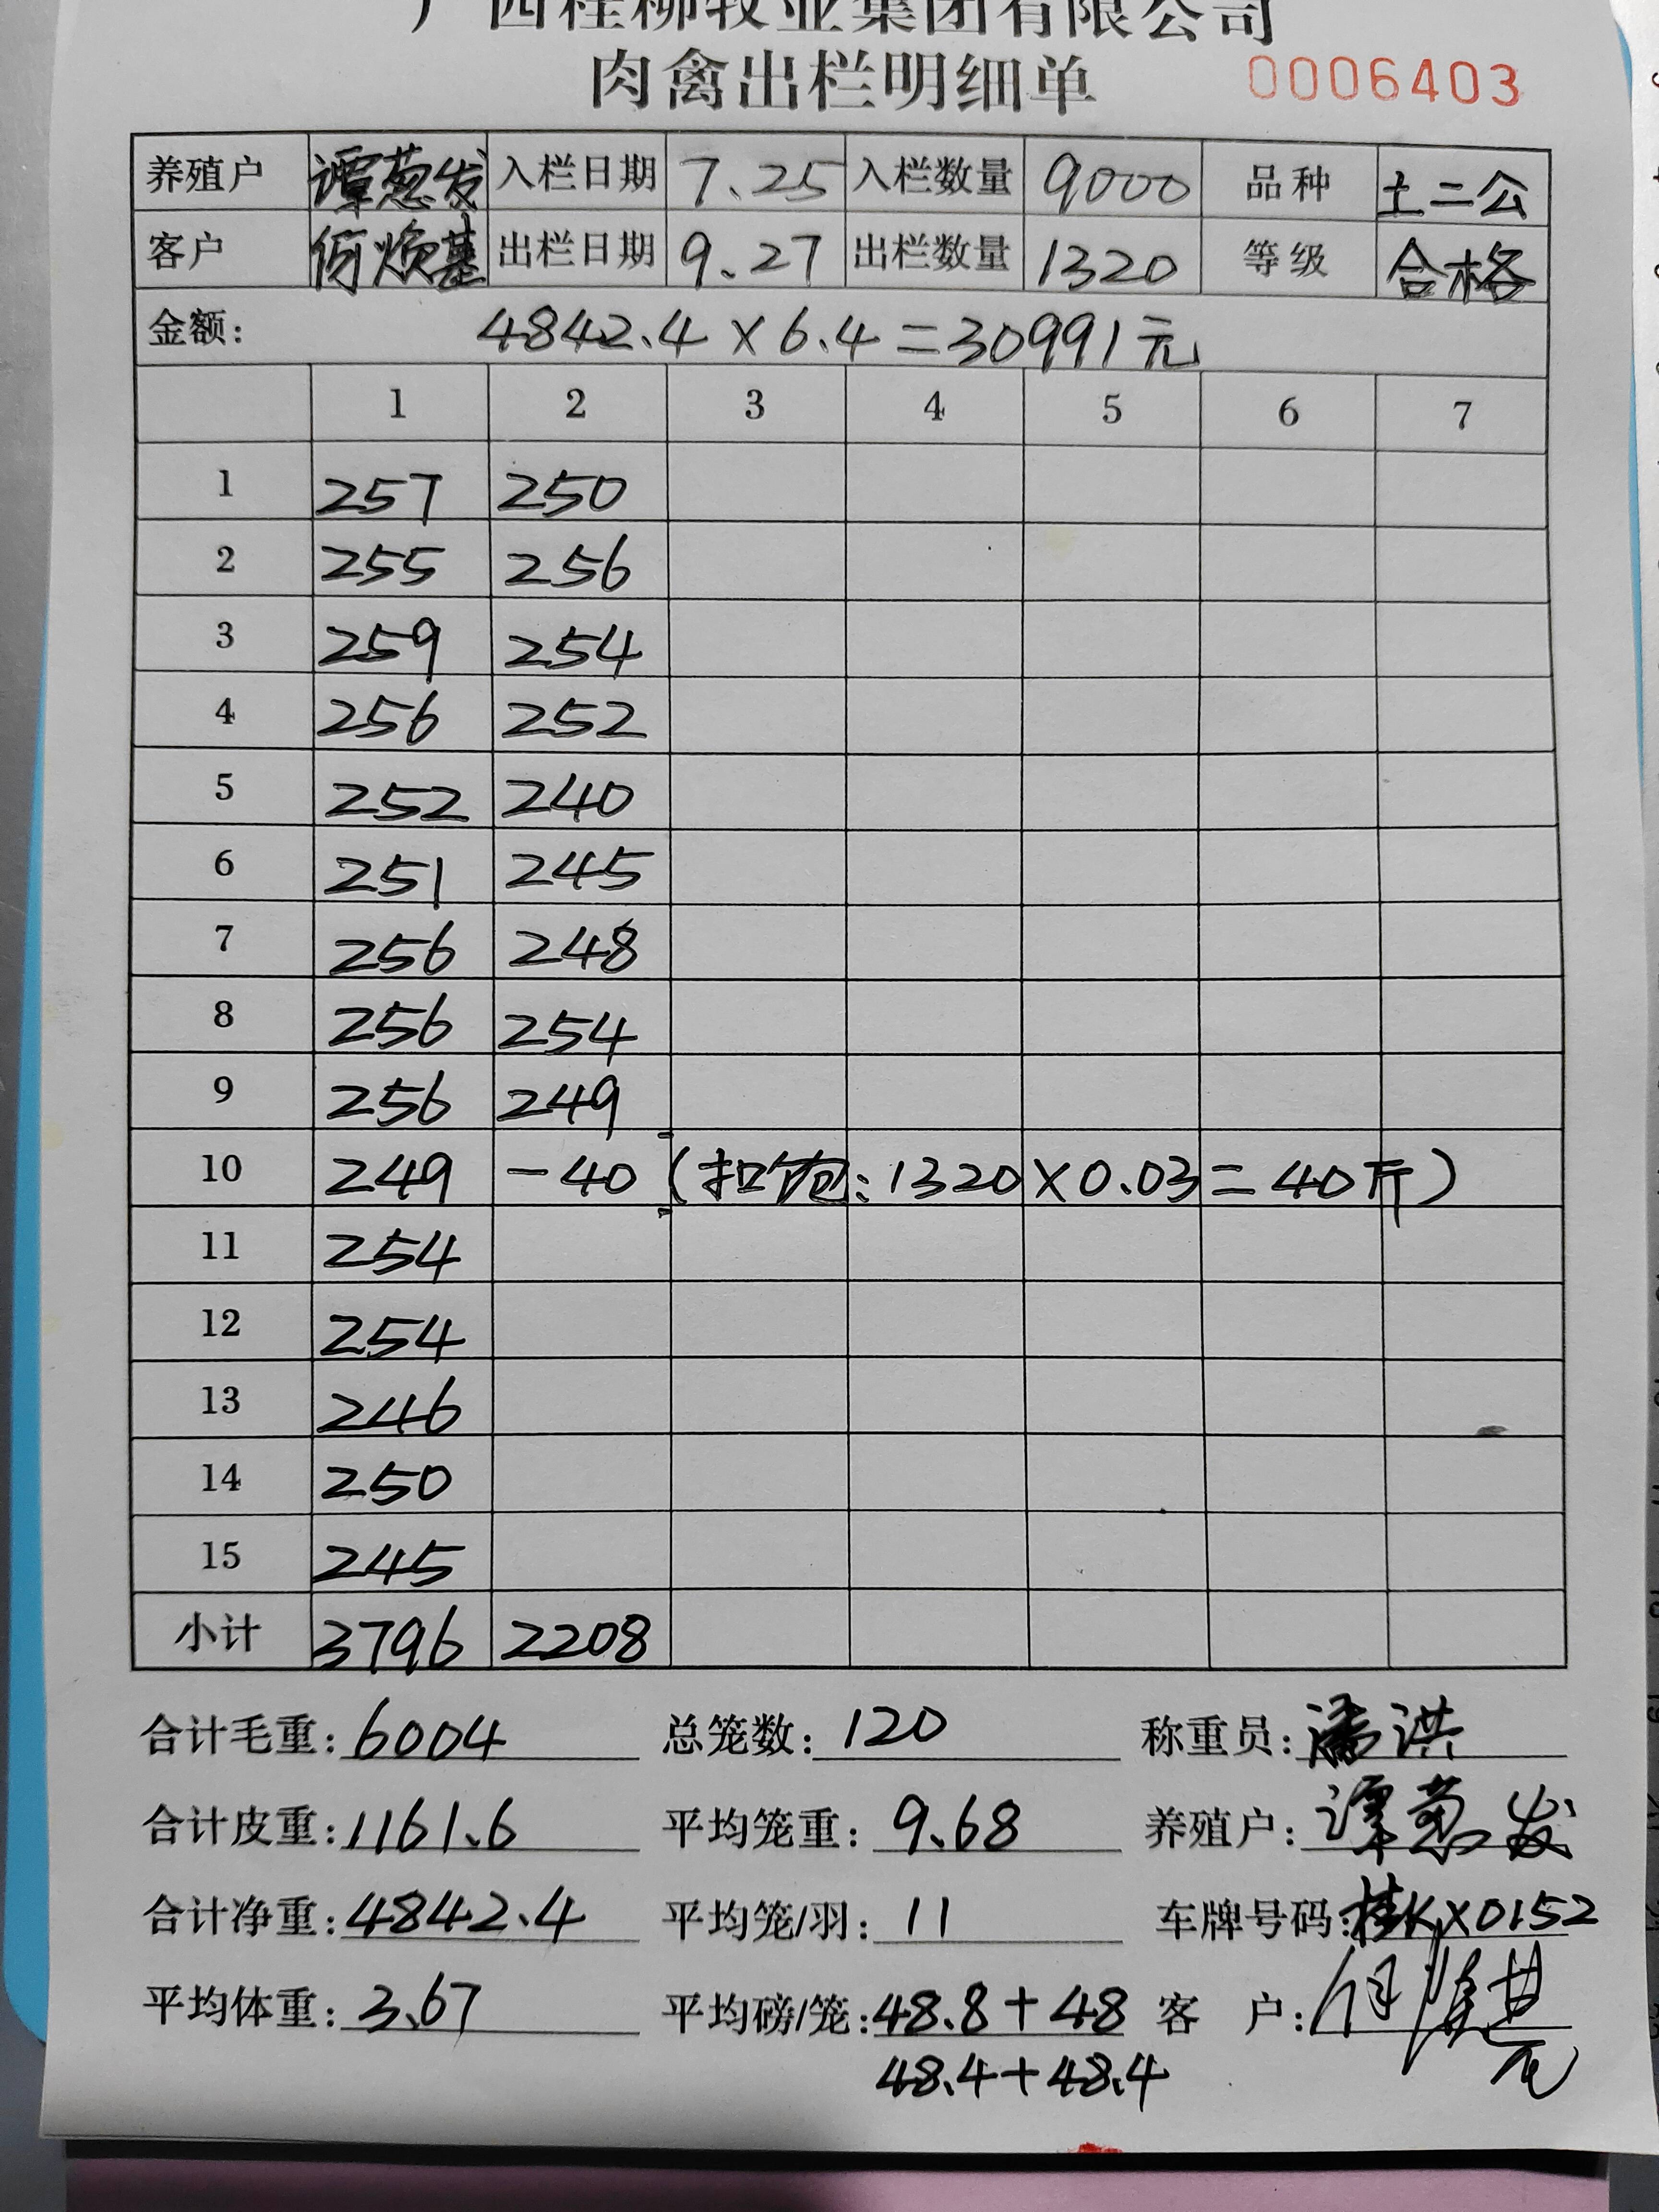 广西桂柳牧业集团有限公司
肉禽出栏明细单 0006403
养殖户 谭葱发 入栏日期 7.25 入栏数量 9000 品种 土二公
客户 何焕基 出栏日期 9.27 出栏数量 1320 等级 合格
金额: 4842.4×6.4=30991元
1 2 3 4 5 6 7
1 257 250
2 255 256
3 259 254
4 256 252
5 252 240
6 251 245
7 256 248
8 256 254
9 256 249
10 249 -40 (扣饱:1320×0.03=40斤)
11 254
12 254
13 246
14 250
15 245
小计 3796 2208
合计毛重:6004 总笼数:120 称重员:潘洪
合计皮重:1161.6 平均笼重:9.68 养殖户:谭葱发
合计净重:4842.4 平均笼/羽:11 车牌号码:桂KX0152
平均体重:3.67 平均磅/笼:48.8+48 客 户:何焕基
48.4+48.4